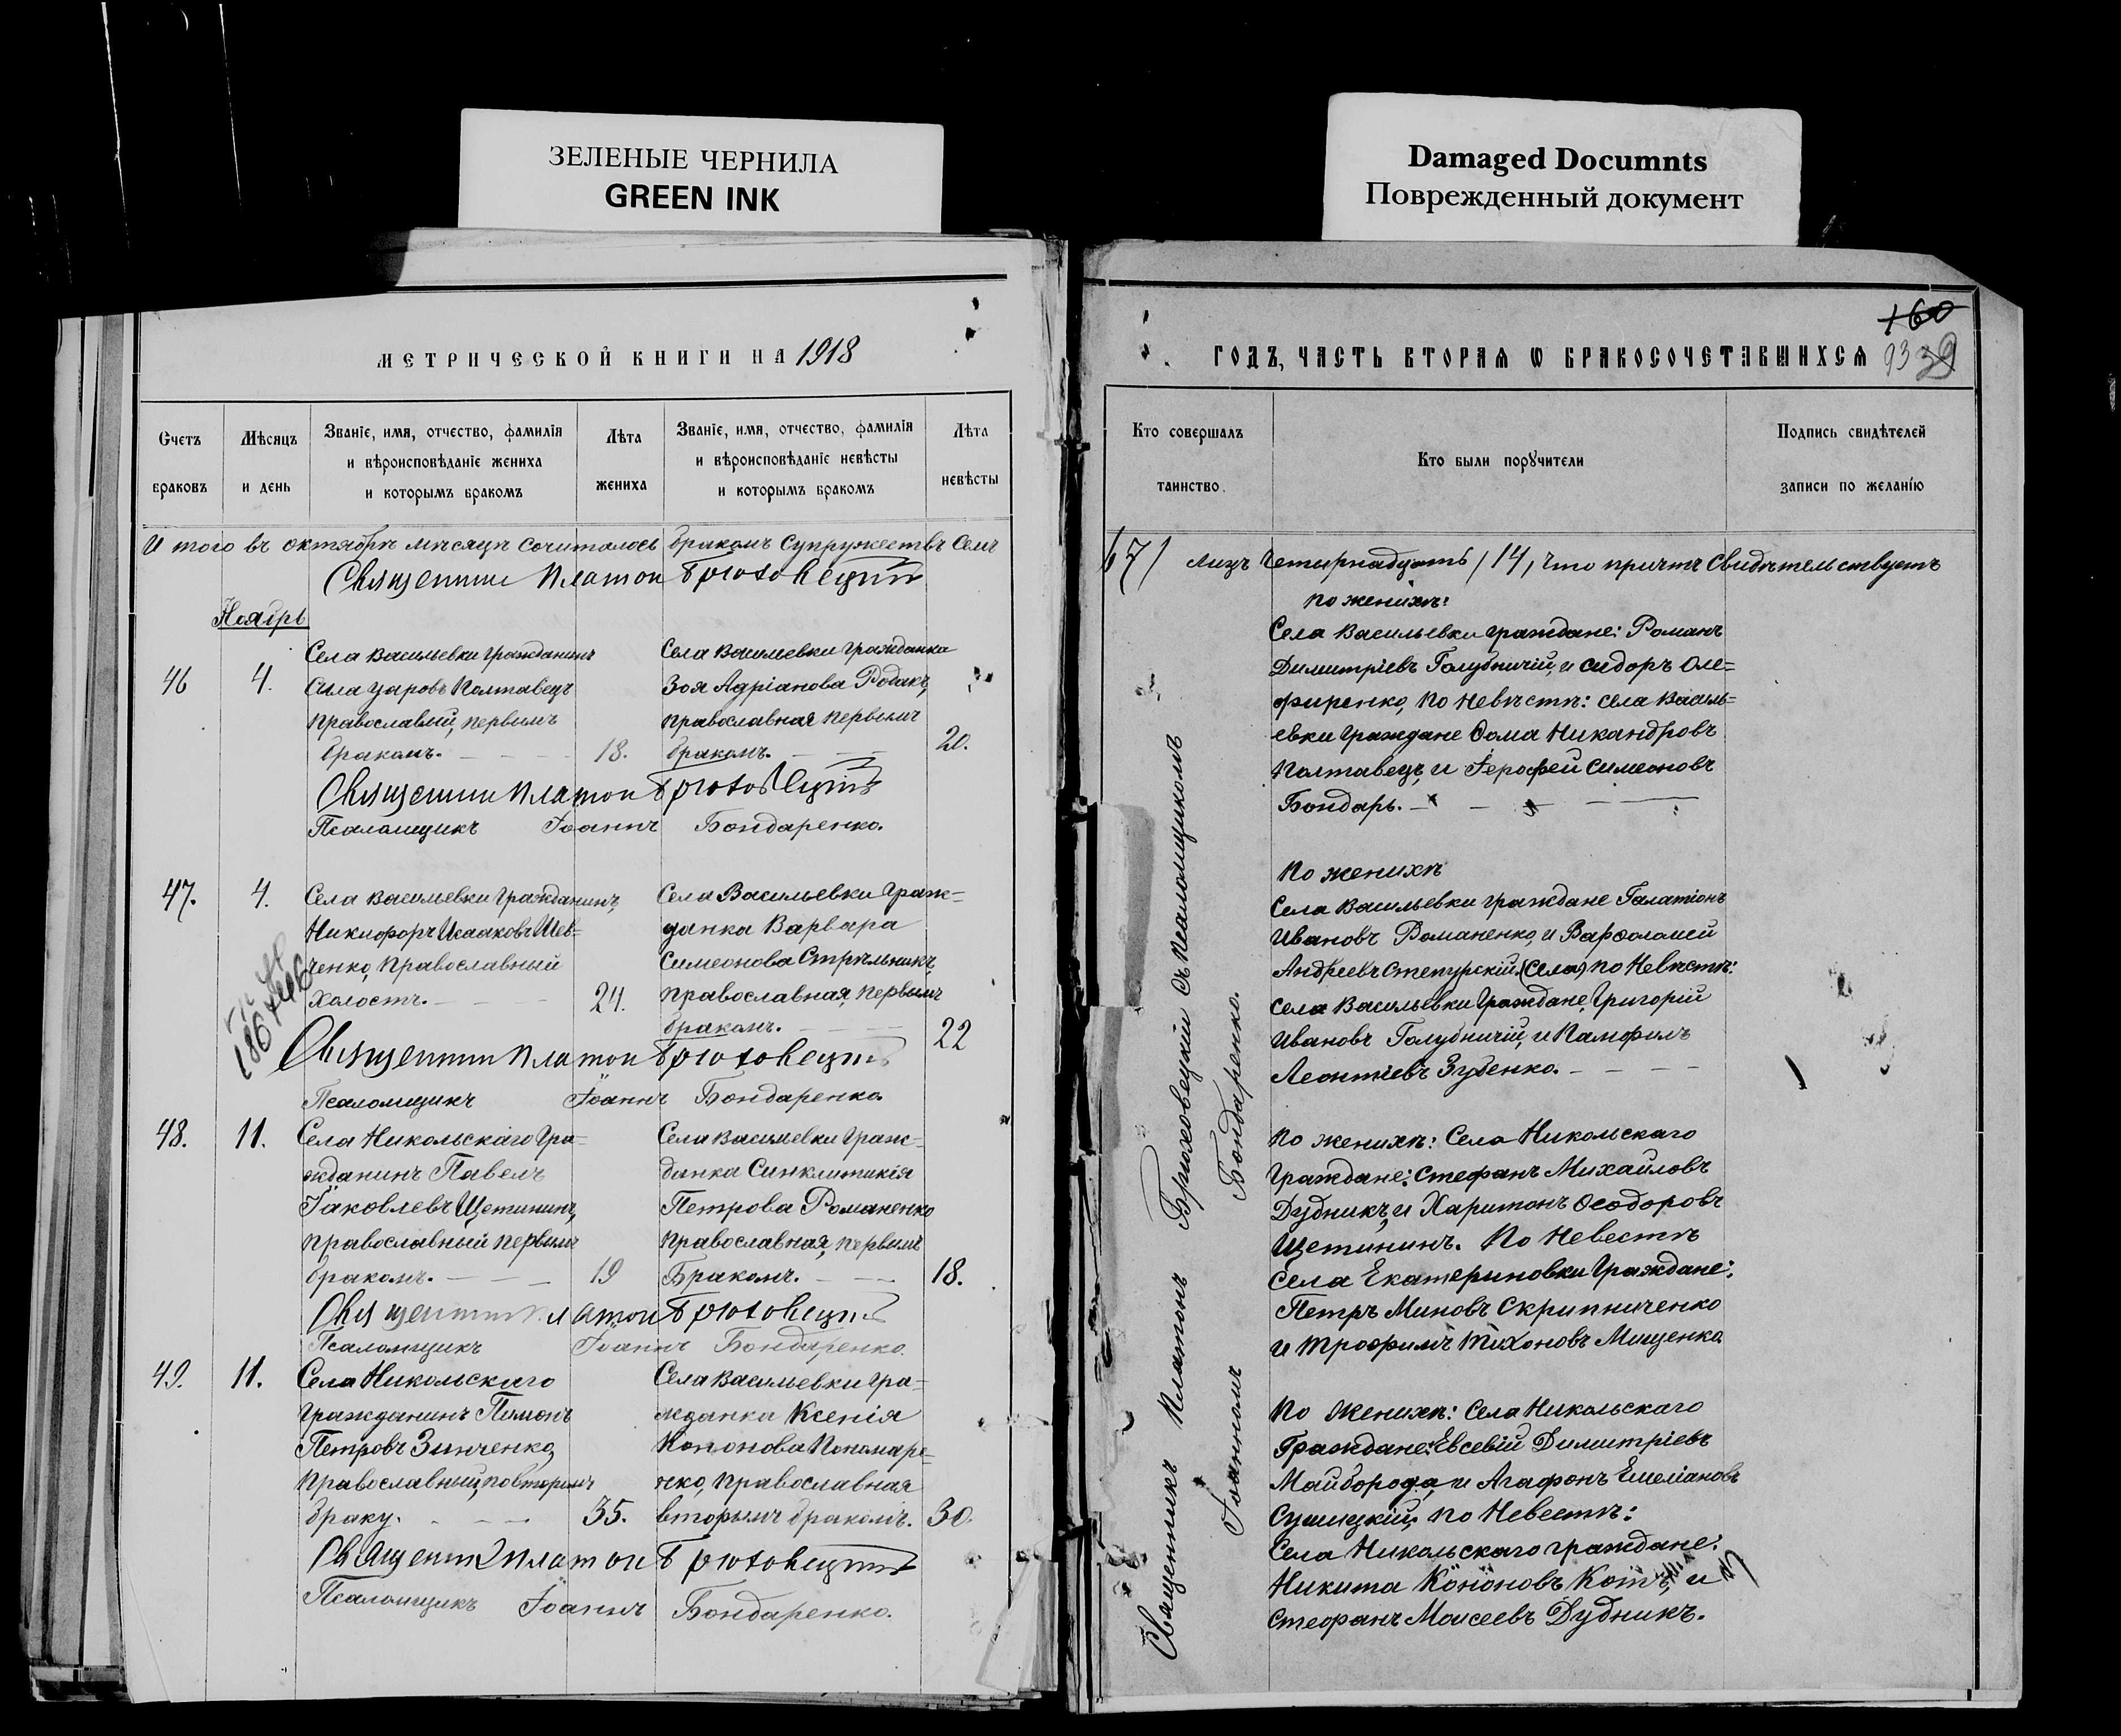 ЗЕЛЕНЫЕ ЧЕРНИЛА
GREEN INK
Damaged Documnts
Поврежденный документ
МЕТРИЧЕСКОЙ КНИГИ НА 1918
Счетъ
браковъ
Мѣсяцъ
и день
Званіе, имя, отчество, фамилія
и вѣроисповѣданіе жениха
и которымъ бракомъ
Лѣта
жениха
Званіе, имя, отчество, фамилія
и вѣроисповѣданіе невѣсты
и которымъ бракомъ
Лѣта
невѣсты
И того въ октябрѣ мѣсяцѣ сочиталось бракомъ супружествъ семь
Священник Платон Брюховецкий
Ноябрь
46
4.
Села Васильевки гражданинъ
Сила Полтавецъ
православный, первымъ
бракомъ.
18.
Села Васильевки гражданка
Зоя Адріанова Родакъ,
православная первымъ
бракомъ.
20.
Священник Платон Брюховецкий
Псаломщикъ Іоаннъ Бондаренко.
47.
4.
Села Васильевки гражданинъ,
Никифоръ Исааковъ Шев-
ченко, православный
холостъ.
24.
Села Васильевки граж-
данка Варвара
Симеонова Стрѣльникъ,
православная, первымъ
бракомъ.
22
Священник Платон Брюховецкий
Псаломщикъ Іоаннъ Бондаренко.
48.
11.
Села Никольскаго гра-
жданинъ Павелъ
Іаковлевъ Щетининъ,
православный первымъ
бракомъ.
19
Села Васильевки граж-
данка Синклитикія
Петрова Романенко
православная, первымъ
Бракомъ.
18.
Священник Платон Брюховецкий
Псаломщикъ Іоаннъ Бондаренко.
49.
11.
Села Никольскаго
гражданинъ Пимонъ
Петровъ Зинченко,
православный, по второму
браку.
35.
Села Васильевки гра-
жданка Ксенія
Кононова Пономаре-
нко, православная
вторымъ бракомъ.
30.
Священник Платон Брюховецкий
Псаломщикъ Іоаннъ Бондаренко.
160
93 39
ГОДЪ, ЧАСТЬ ВТОРАЯ Ѡ БРАКОСОЧЕТАВШИХСЯ
Кто совершалъ
таинство.
Кто были поручители
Подпись свидѣтелей
записи по желанію
/7/ лицъ четырнадцать /14/, что причтъ свидѣтельствуетъ
По женихѣ:
Села Васильевки граждане: Романъ
Димитріевъ Голубничій, и Сидоръ Оле-
фиренко, по невѣстѣ: села Василь-
евки граждане Ѳома Никандровъ
Полтавецъ, и Іерофей Симеоновъ
Бондарь.
По женихѣ
Села Васильевки граждане Галатіонъ
Ивановъ Романенко, и Варѳоломей
Андреевъ Степурскій (Села) по невѣстѣ:
села Васильевки граждане, Григорій
Ивановъ Голубничій, и Памфилъ
Леонтіевъ Зубенко.
По женихѣ: Села Никольскаго
граждане: Стефанъ Михаиловъ
Дубникъ, и Харитонъ Ѳеодоровъ
Щетининъ. По Невестѣ
Села Екатериновки граждане:
Петръ Миновъ Скрипниченко
и Трофимъ Тихоновъ Мищенко.
По женихѣ: Села Никольскаго
Граждане: Евсевій Димитріевъ
Майборода, и Агафонъ Емеліановъ
по Невестѣ:
Села Никольскаго граждане:
Никита Кононовъ Котъ, и
Стефанъ Моисеевъ Дубникъ.
Священникъ Платонъ Брюховецкій съ псаломщикомъ
Іоанномъ Бондаренко.